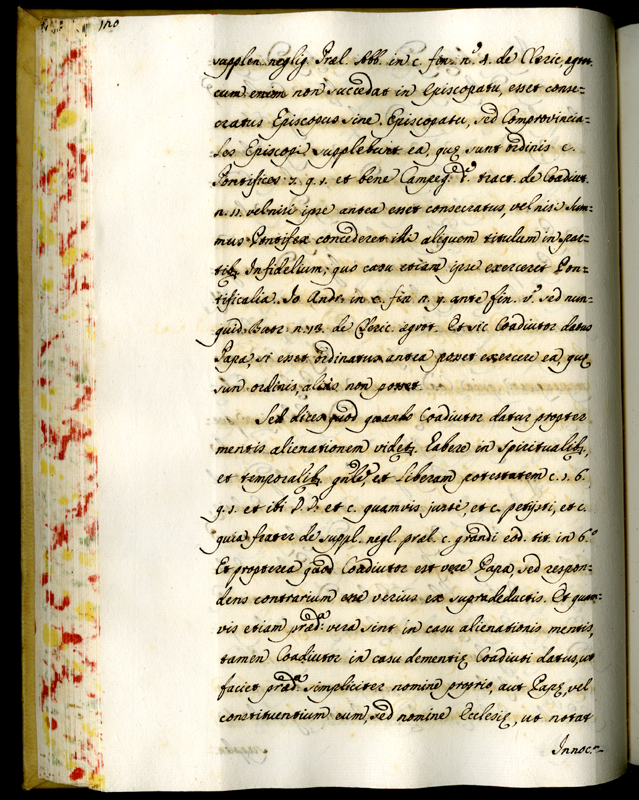 120
supplen. neglig. Præl. Abb. in c. fin. nº 4. de Cleric. ægrot.
cum enim non succedat in Episcopatu, esset conse-
cratus Episcopus sine Episcopatu, sed Comprovincia-
les Episcopi supplebunt ea, quę sunt ordinis c.
Pontifices 7. q. 1. et bene Campeg. dº. tract. de Coadiut.
n. 11. vel nisi ipse antea esset consecratus, vel nisi Sum-
mus Pontifex concederet illi aliquem titulum in par-
tib. Infidelium, quo casu etiam ipse exerceret Pon-
tificalia. Jo. Andr. in c. fin. n. 7. ante fin. vº. sed nun-
quid n. 13. de Cleric. ægrot. Et sic Coadiutor datus
Papa, si esset ordinatus antea posset exercere ea quę
sunt ordinis, alias non posset.
Sed dices quod quando Coadiutor datur propter
mentis alienationem videt. habere in spiritualib.
et temporalib. gñle, et liberam potestatem c. 1. 6.
q. 1. et ibi D.D. et c. quamvis juxtè, et c. petijsti, et c.
quia frater de suppl. negl. præl. c. grandi eod. tit. in 6.º
Et propterea quod Coadiutor est vere Papa, sed respon-
dens contrarium esse verius ex supradeductis. Et quam-
vis etiam præd.a vera sint in casu alienationis mentis,
tamen Coadiutor in casu dementię Coadiuti datus, ut
faciet præd.a simpliciter nomine proprio, aut Papę, vel
constituentium eum, sed nomine Ecclesię, ut notat
Innoc.